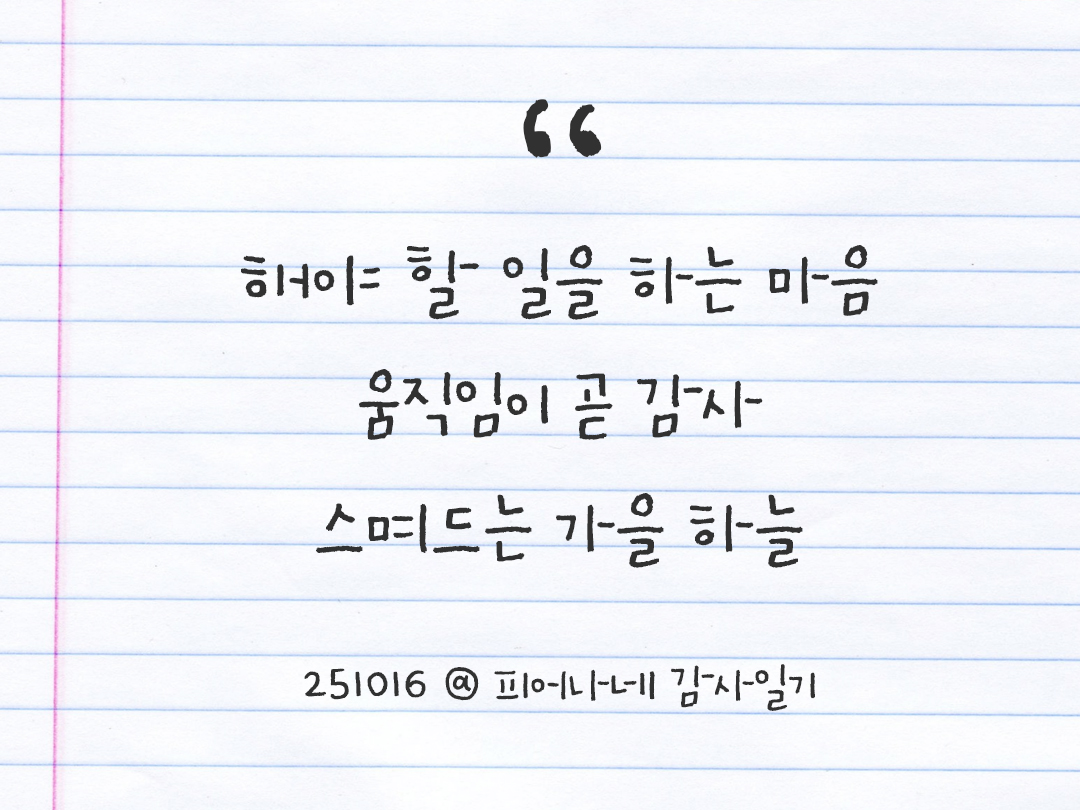 “
해야 할 일을 하는 마음
움직임이 곧 감사
스며드는 가을 하늘
251016 @ 피어나네 감사일기